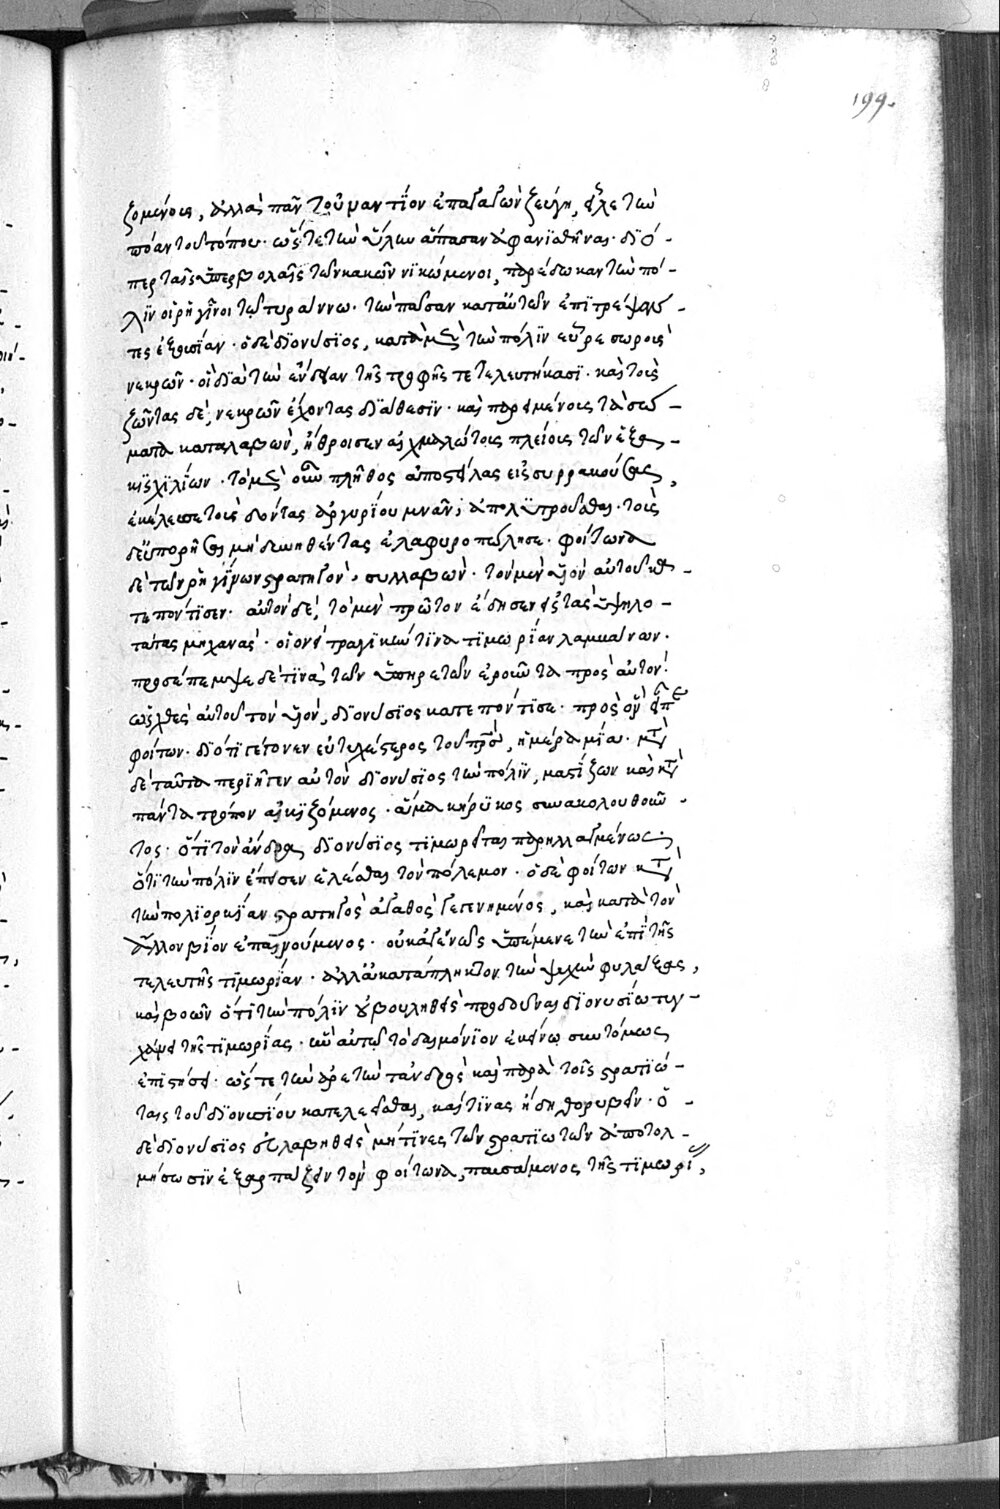 199.
ζομένοις, ἀλλὰ πᾶν τοὐναντίον ἐπαγαγὼν ζεύγη, εἷλε τὴν
πόαν τοῦ τόπου· ὥστε τὴν ὕλην ἅπασαν ἀφανϊσθῆναι· δϊό-
περ ταῖς ὑπερβολαῖς τῶν κακῶν νϊκώμενοι, παρέδωκαν τὴν πό-
λϊν οἱ ῥηγῖνοι τῷ τυράννω· τὴν πᾶσαν κατ' αὐτῶν ἐπϊτρέψαν-
τες ἐξουσίαν· ὁ δὲ δϊονύσϊος, κατὰ μὲν τὴν πόλϊν εὗρε σωροὺς
νεκρῶν· οἳ δϊὰ τὴν ἔνδειαν τῆς τροφῆς τετελευτήκασϊ· καὶ τοὺς
ζῶντας δὲ, νεκρῶν ἔχοντας δϊάθεσϊν· καὶ παρειμένους τὰ σώ-
ματα καταλαβὼν, ἤθροισεν αἰχμαλώτους πλείους τῶν ἑξα-
κϊσχϊλΐων· τὸ μὲν οὖν πλῆθος ἀποστείλας εἰς συρρακούσας,
ἐκέλευσε τοὺς δόντας ἀργυρΐου μνᾶν, ἀπολϋτροῦσθαι· τοὺς
δ' εὐπορῆσαι μὴ δυνηθέντας ἐλαφυροπώλησε· φοίτωνα
δὲ τῶν ῥηγΐνων στρατηγὸν, συλλαβὼν· τὸν μὲν υἱὸν αὐτοῦ κα-
τεπόντϊσεν· αὐτὸν δὲ, τὸ μὲν πρῶτον ἔδησεν εἰς τὰς ὑψηλο-
τάτας μηχανάς· οἱονεὶ τραγϊκήν τϊνα τϊμωρΐαν λαμβάνων·
προσέπεμψε δὲ τϊνὰ τῶν ὑπηρετῶν ἐροῦντα πρὸς αὐτὸν·
ὡς χθὲς αὐτοῦ τὸν υἱὸν, δϊονύσϊος κατεπόντϊσε· πρὸς ὃν εἶπε
φοίτων· δϊότϊ γέγονεν εὐτυχέστερος τοῦ πρς, ἡμέρα μϊᾶ· μετὰ
δὲ ταῦτα περϊῆγεν αὐτὸν δϊονύσϊος τὴν πόλϊν, μαστΐζων καὶ κατὰ
πάντα τρόπον αἰκϊζόμενος· ἅμα κήρϋκος συνακολουθοῦν-
τος· ὅτϊ τὸν ἄνδρα δϊονύσϊος τϊμωρεῖται παρηλλαγμένως·
ὅτϊ τὴν πόλϊν ἔπεισεν ἑλέσθαι τὸν πόλεμον· ὁ δὲ φοίτων κατὰ
τὴν πολϊορκΐαν στρατηγὸς ἀγαθὸς γεγενημένος, καὶ κατὰ τὸν
ἄλλον βΐον ἐπαινούμενος· οὐκ ἀγεννῶς ὑπέμενε τὴν ἐπὶ τῆς
τελευτῆς τϊμωρΐαν· ἀλλ' ἀκατάπληκτον τὴν ψυχὴν φυλάξας,
καὶ βοῶν ὅτϊ τὴν πόλϊν οὐ βουληθεὶς προδοῦναι δϊονυσΐω τυγ-
χάνει τῆς τϊμωρΐας· ἣν αὐτῷ τὸ δαιμόνϊον ἐκείνω συντόμως
ἐπϊστήσει· ὥστε τὴν ἀρετὴν τἀνδρὸς καὶ παρὰ τοῖς στρατϊώ-
ταις τοῦ δϊονυσΐου κατελεεῖσθαι, καί τϊνας ἤδη θορυβεῖν· ὁ
δὲ δϊονύσϊος εὐλαβηθεὶς μή τϊνες τῶν στρατϊωτῶν ἀποτολ-
μήσωσϊν ἐξαρπάζειν τὸν φοίτωνα, παυσάμενος τῆς τϊμωρΐας,